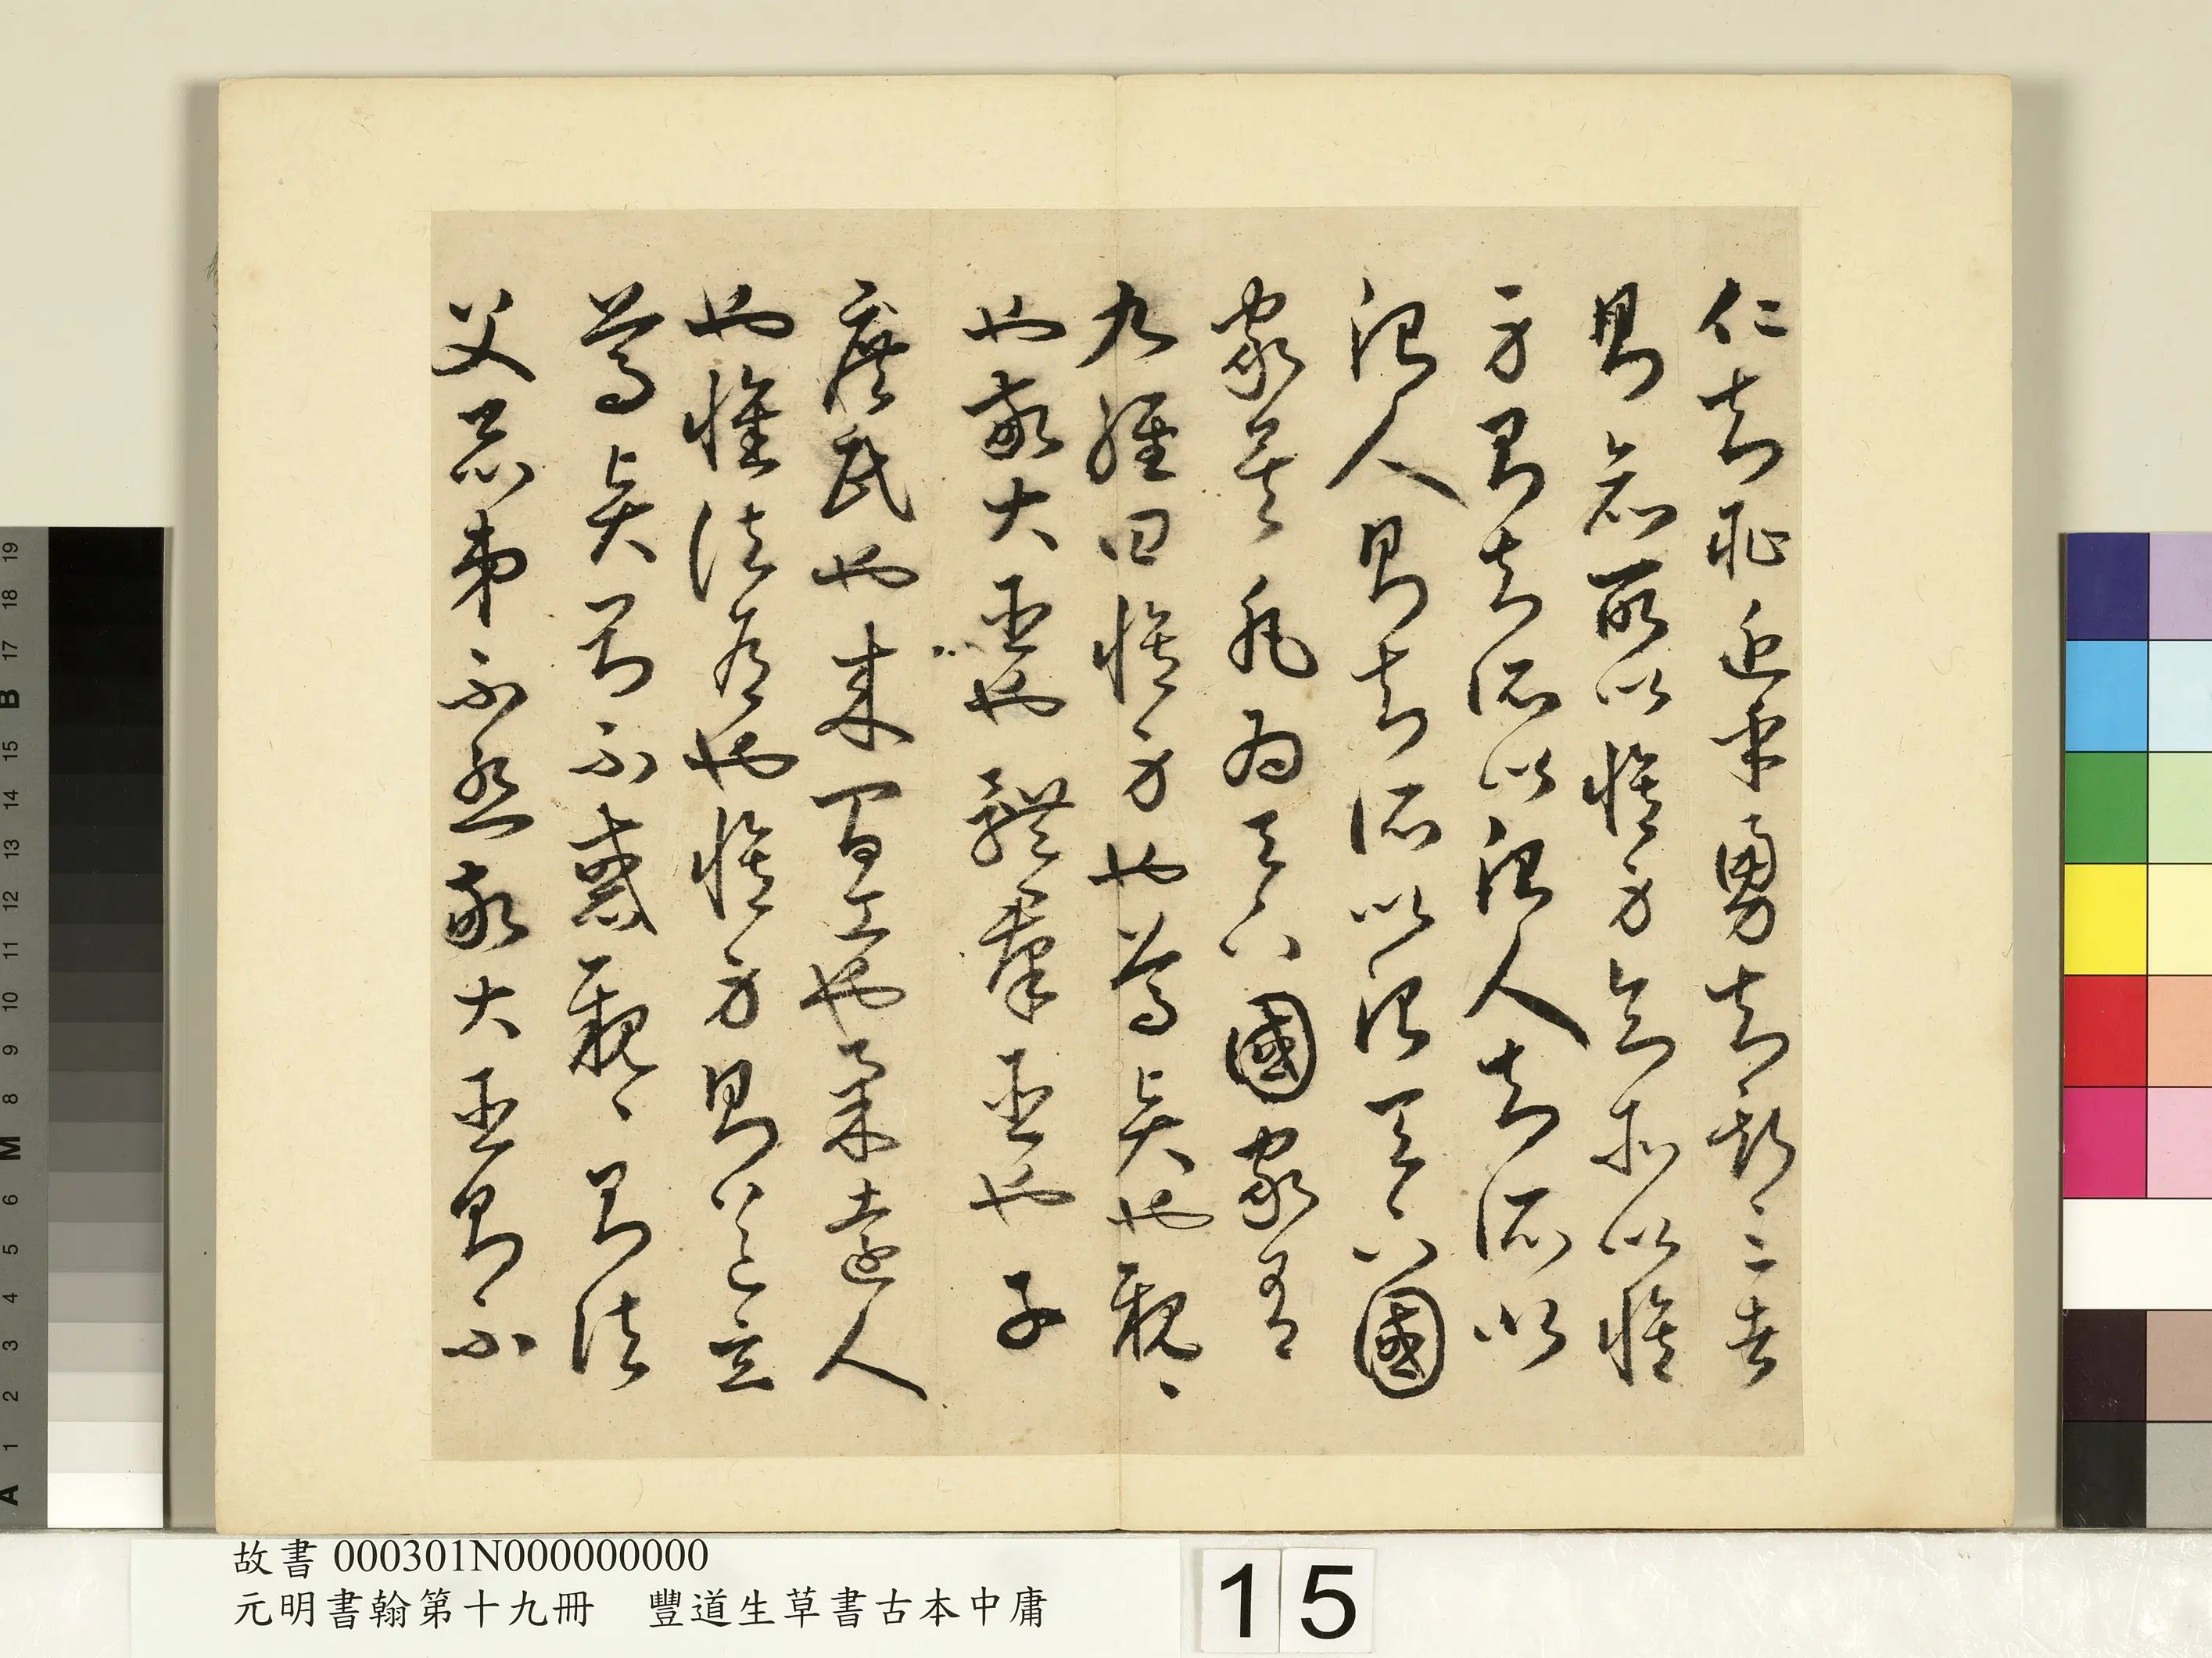 仁知恥近乎勇知斯三者
則知所以脩身知所以脩
身則知所以治人知所以
治人則知所以治天下國
家矣凡為天下國家有
九經曰脩身也尊賢也親〻
也敬大臣也體羣臣也子
庶民也來百工也柔遠人
也懷諸侯也脩身則道立
尊賢則不惑親〻則諸
父昆弟不怨敬大臣則不
故書 000301N000000000
元明書翰第十九冊　豐道生草書古本中庸
15
A 1 2 3 4 5 6 M 8 9 10 11 12 13 14 15 B 17 18 19